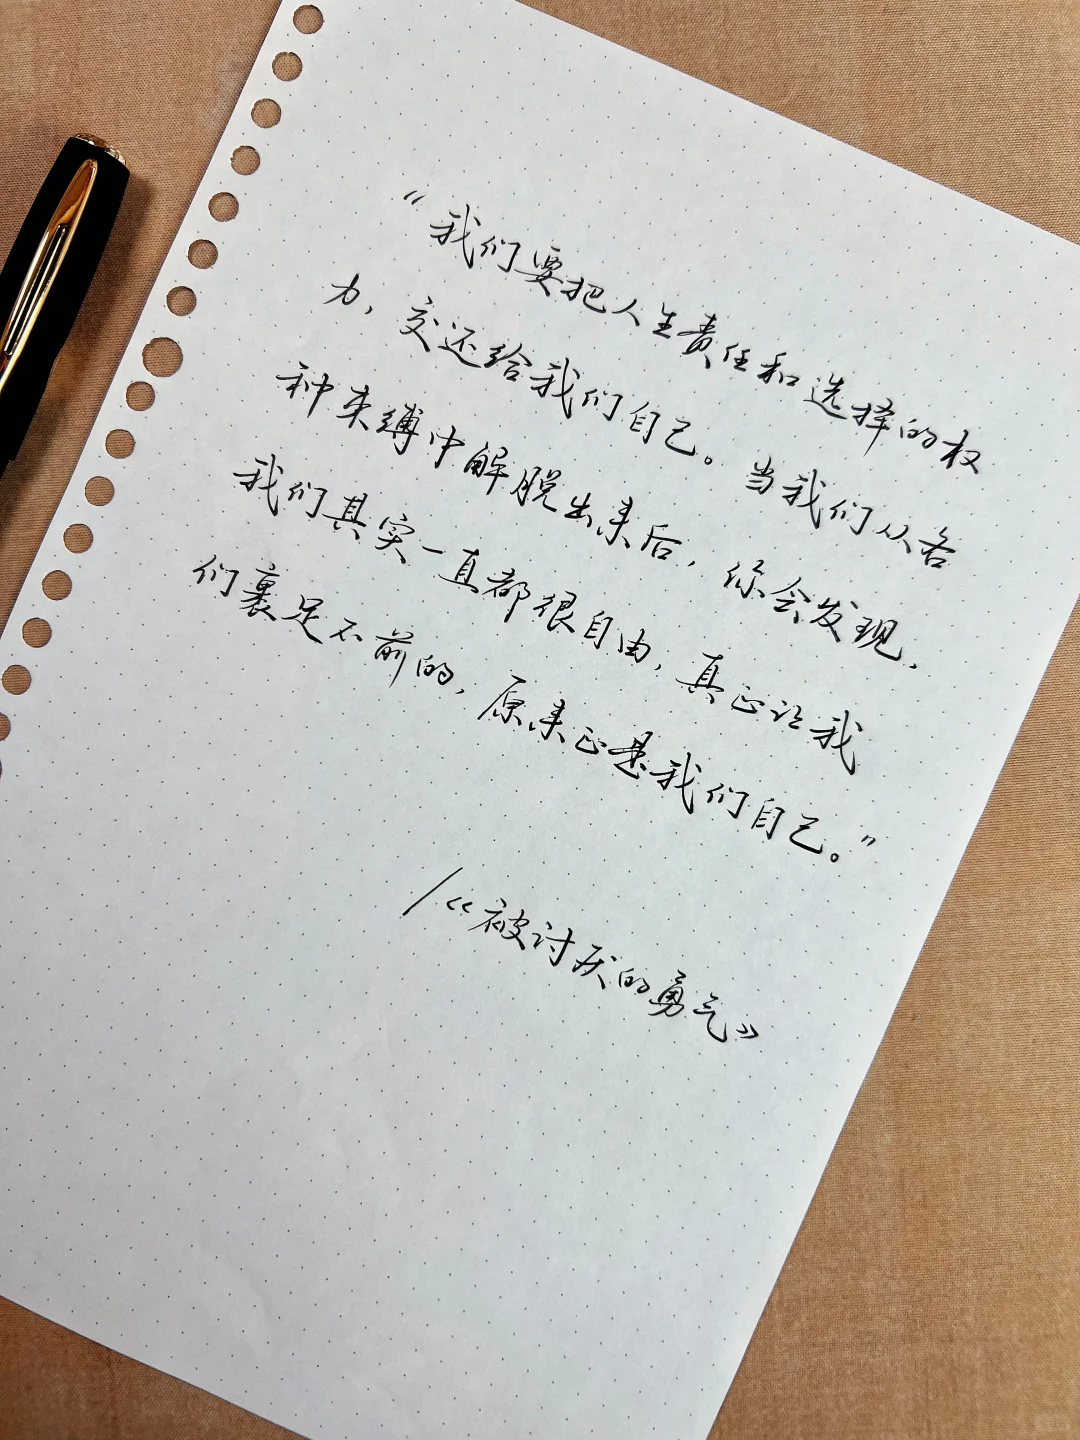 “我们要把人生责任和选择的权
力，交还给我们自己。当我们从各
种束缚中解脱出来后，你会发现，
我们其实一直都很自由，真正让我
们裹足不前的，原来正是我们自己。”
/《被讨厌的勇气》